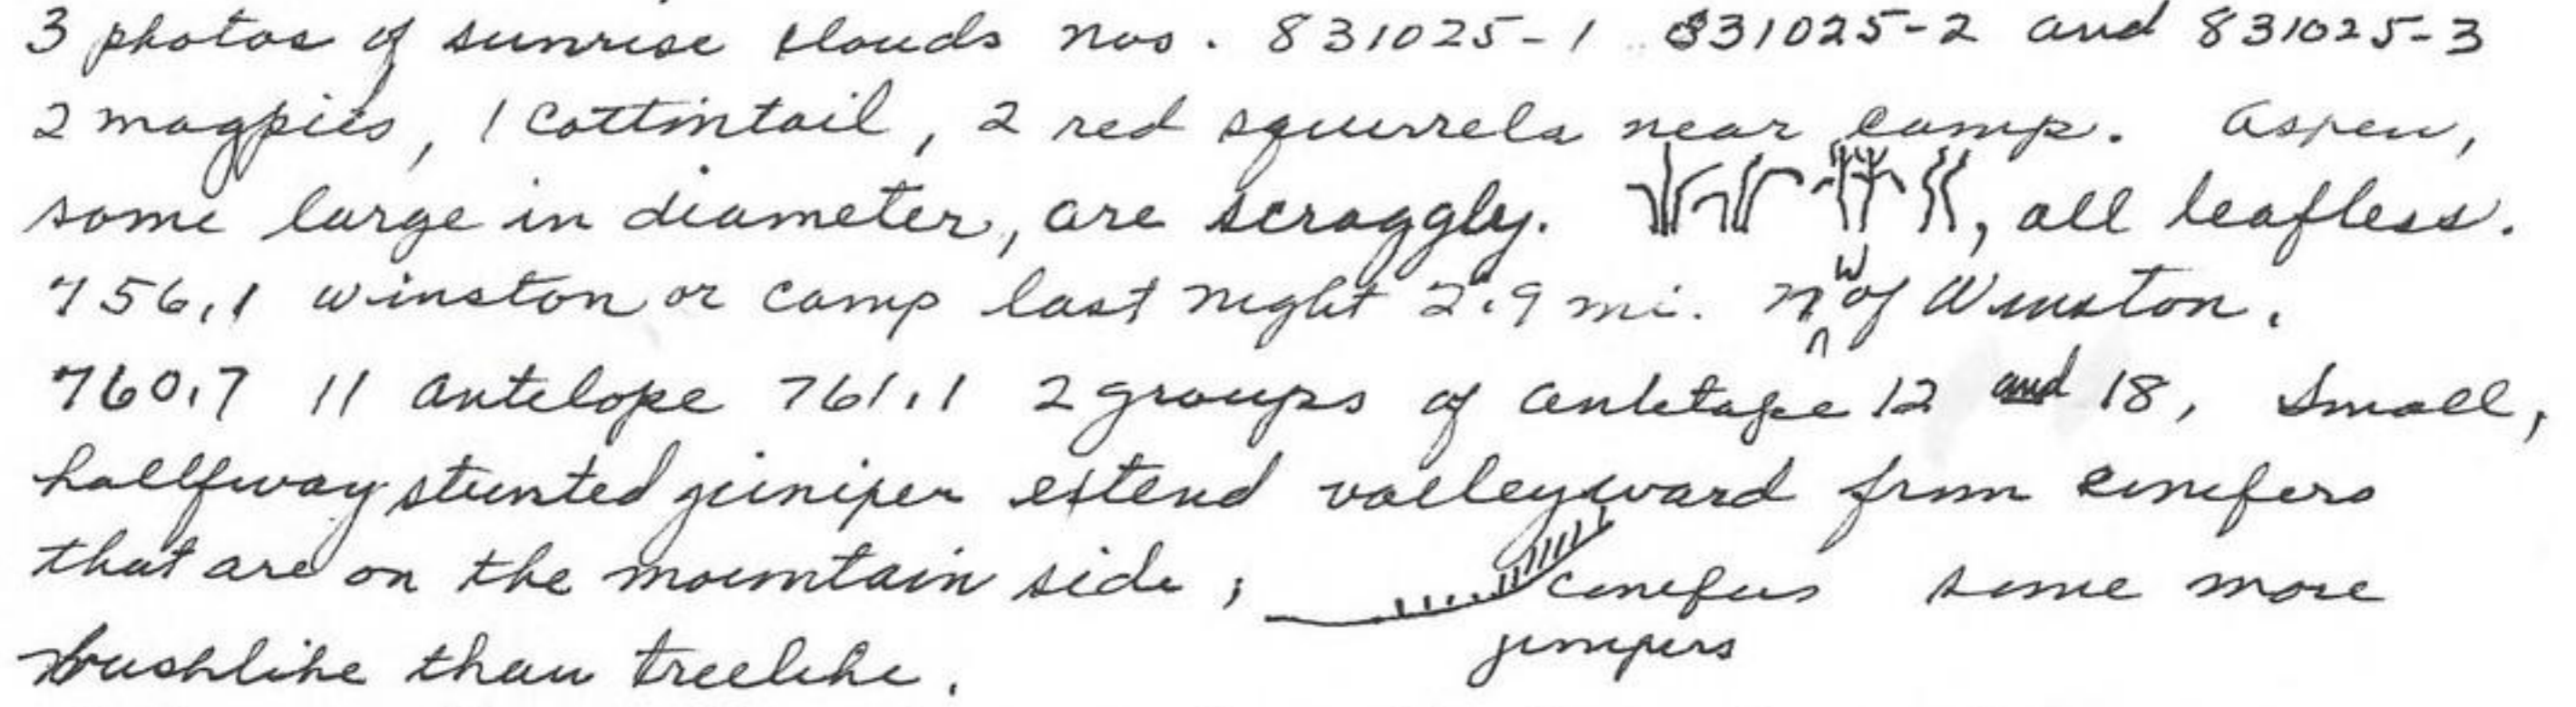 3 photos of sunrise clouds nos. 831025-1 831025-2 and 831025-3
2 magpies, 1 cottintail, 2 red squirrels near camp. Aspen,
some large in diameter, are scraggly. , all leafless.
756.1 Winston or camp last night 2.9 mi. n w of Winston.
760.7 11 antelope 761.1 2 groups of antelope 12 and 18, Small,
hallfway stunted juniper extend valleyward from conifers
that are on the mountain side; conifers some more
junipers
bushlike than treelike.